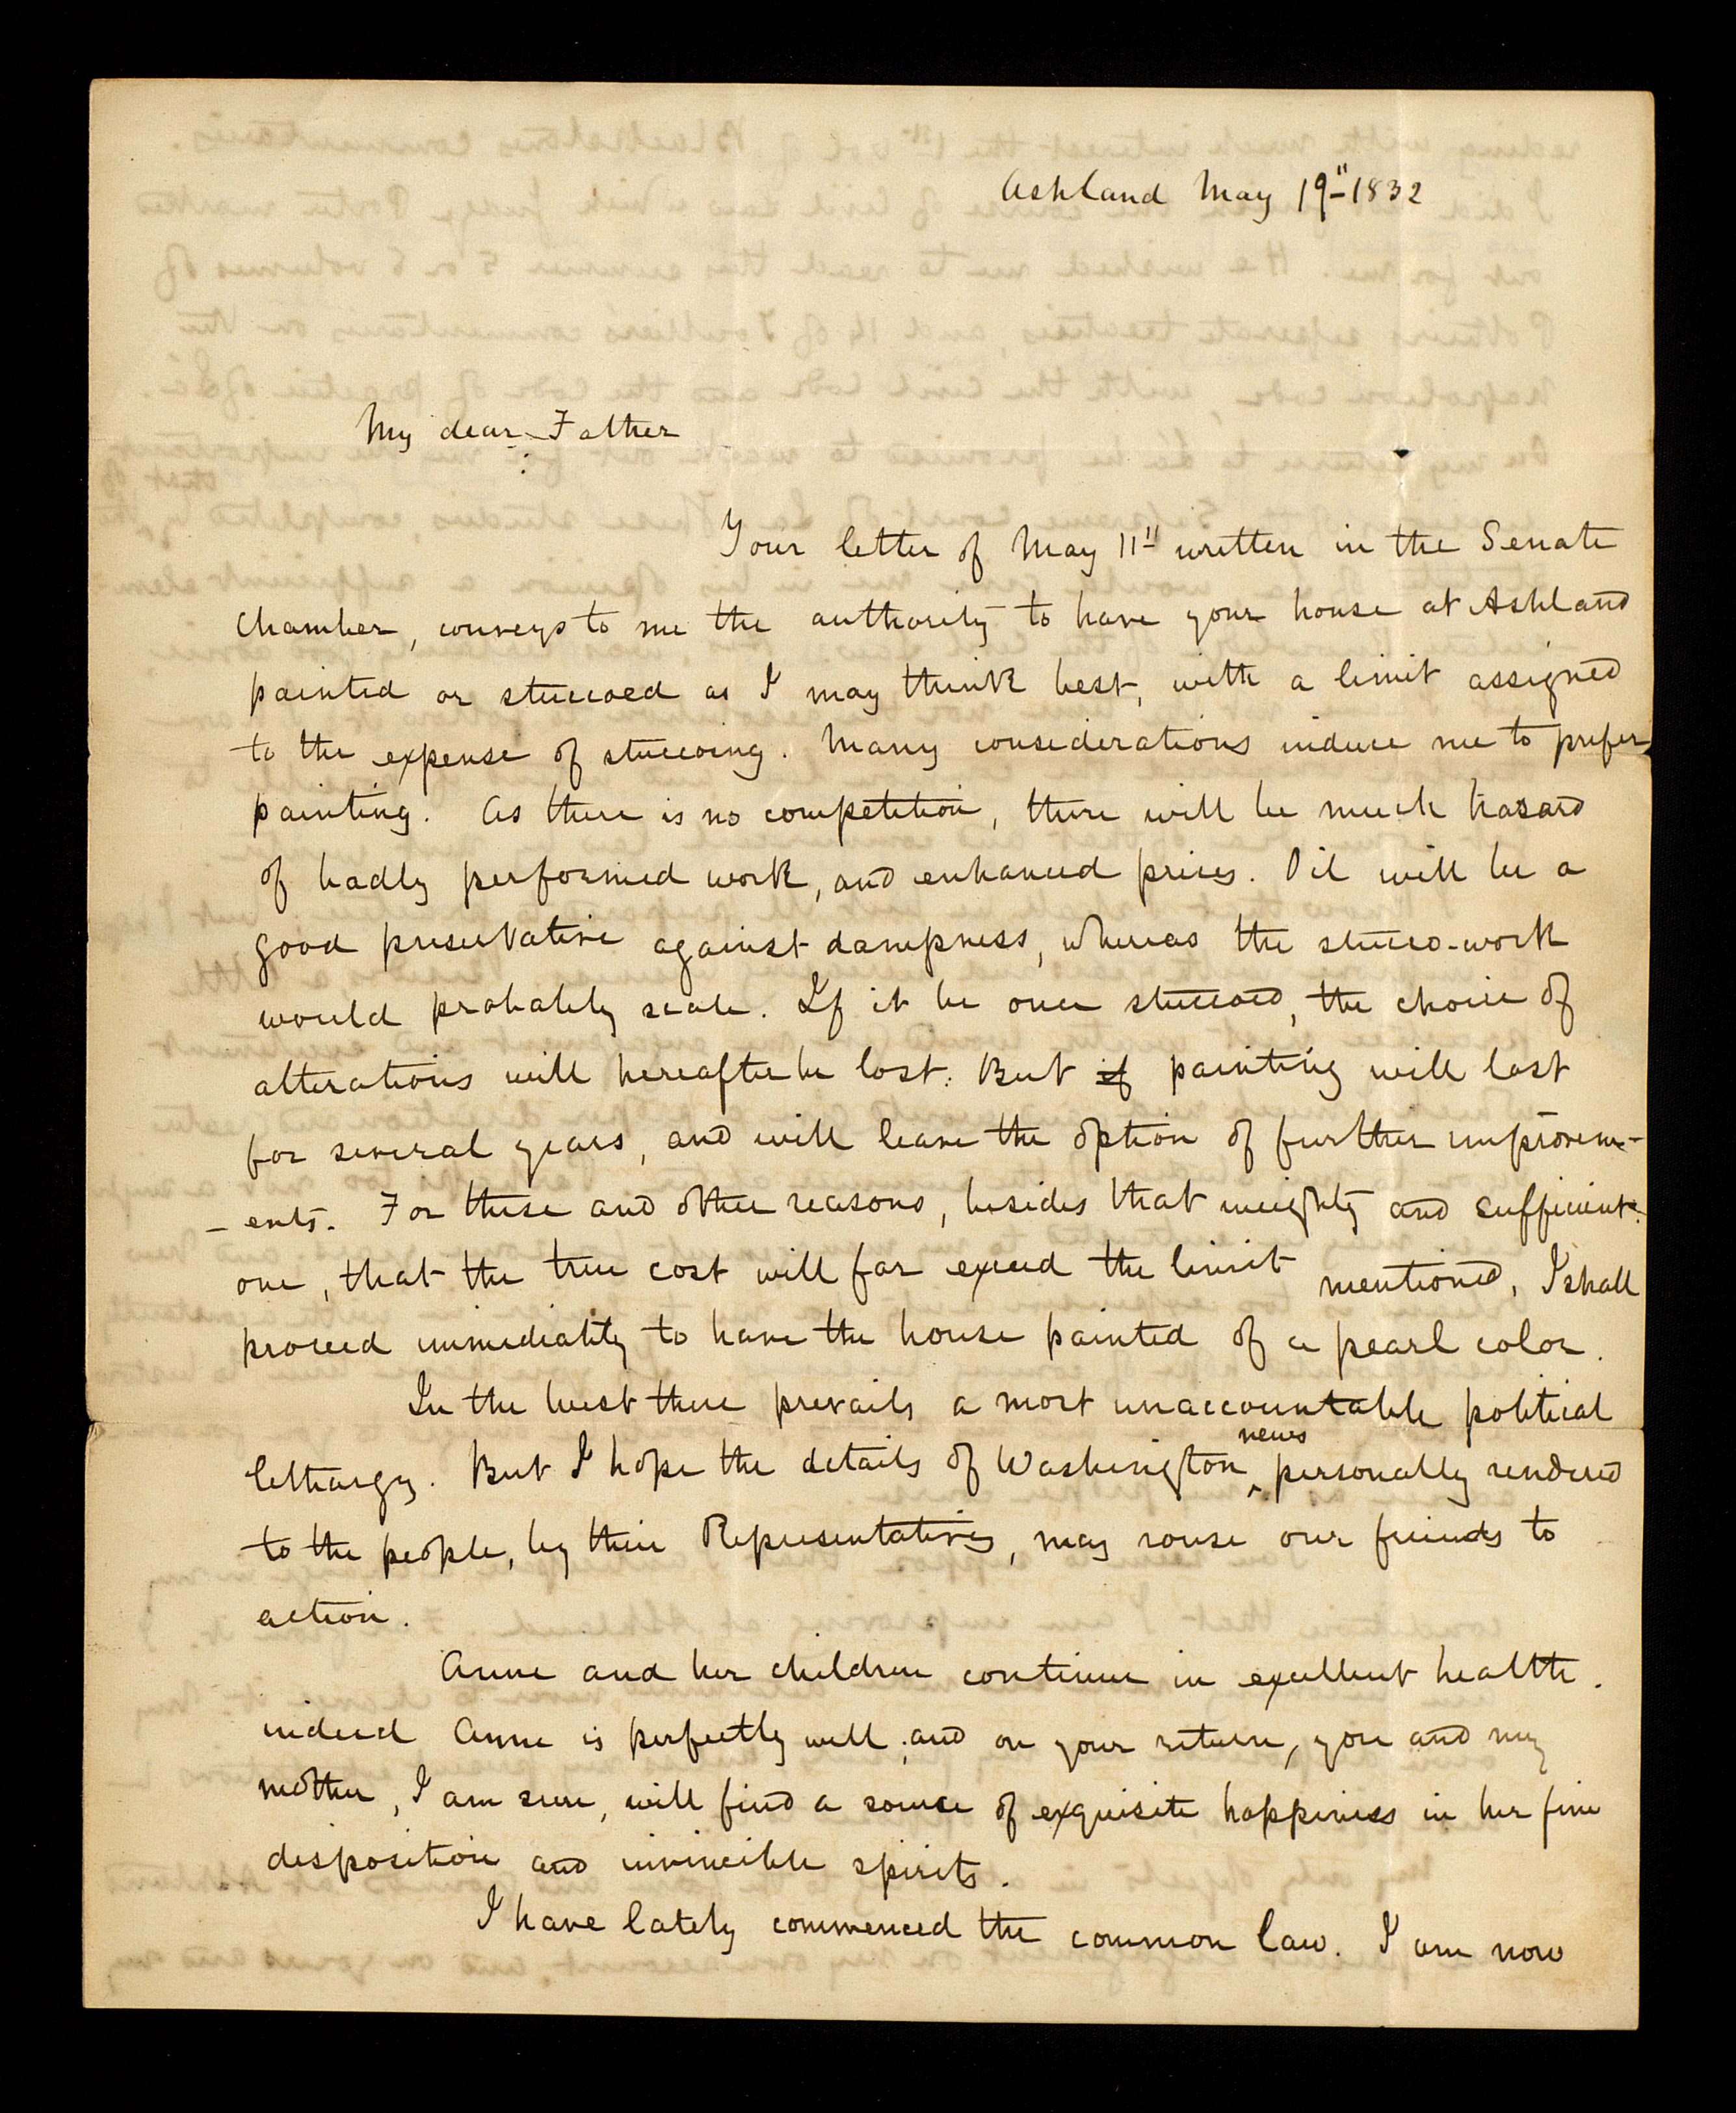 Ashland May 19" 1832
My dear Father
Your letter of May 11" written in the Senate
Chamber, conveys to me the authority to have your house at Ashland
painted or stuccoed as I may think best, with a limit assigned
to the expense of stuccoing. Many considerations induce me to prefer
painting. As there is no competition, there will be much hazard
of badly performed work, and enhanced prices. Oil will be a
good preservative against dampness, whereas the stucco-work
would probably scale. If it be once stuccoed, the choice of
alterations will hereafter be lost. But if painting will last
for several years, and will leave the option of further improvem-
-ents. For these and other reasons, besides that weighty and sufficient
one, that the true cost will far exceed the limit mentioned, I shall
proceed immediately to have the house painted of a pearl color.
In the West there prevails a most unaccountable political
lethargy. But I hope the details of Washington news personally rendered
to the people, by their Representatives, may rouse our friends to
action.
Anne and her children continue in excellent health.
indeed Anne is perfectly well; and on your return, you and my
mother, I am sure, will find a source of exquisite happiness in her fine
disposition and invincible spirits.
I have lately commenced the common law. I am now